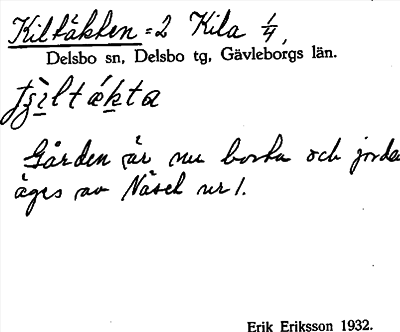 Kiltäkten = 2 Kila 1/4,
Delsbo sn, Delsbo tg, Gävleborgs län.
Gården är nu borta och jorden
äges av Näset nr 1.
Erik Eriksson 1932.